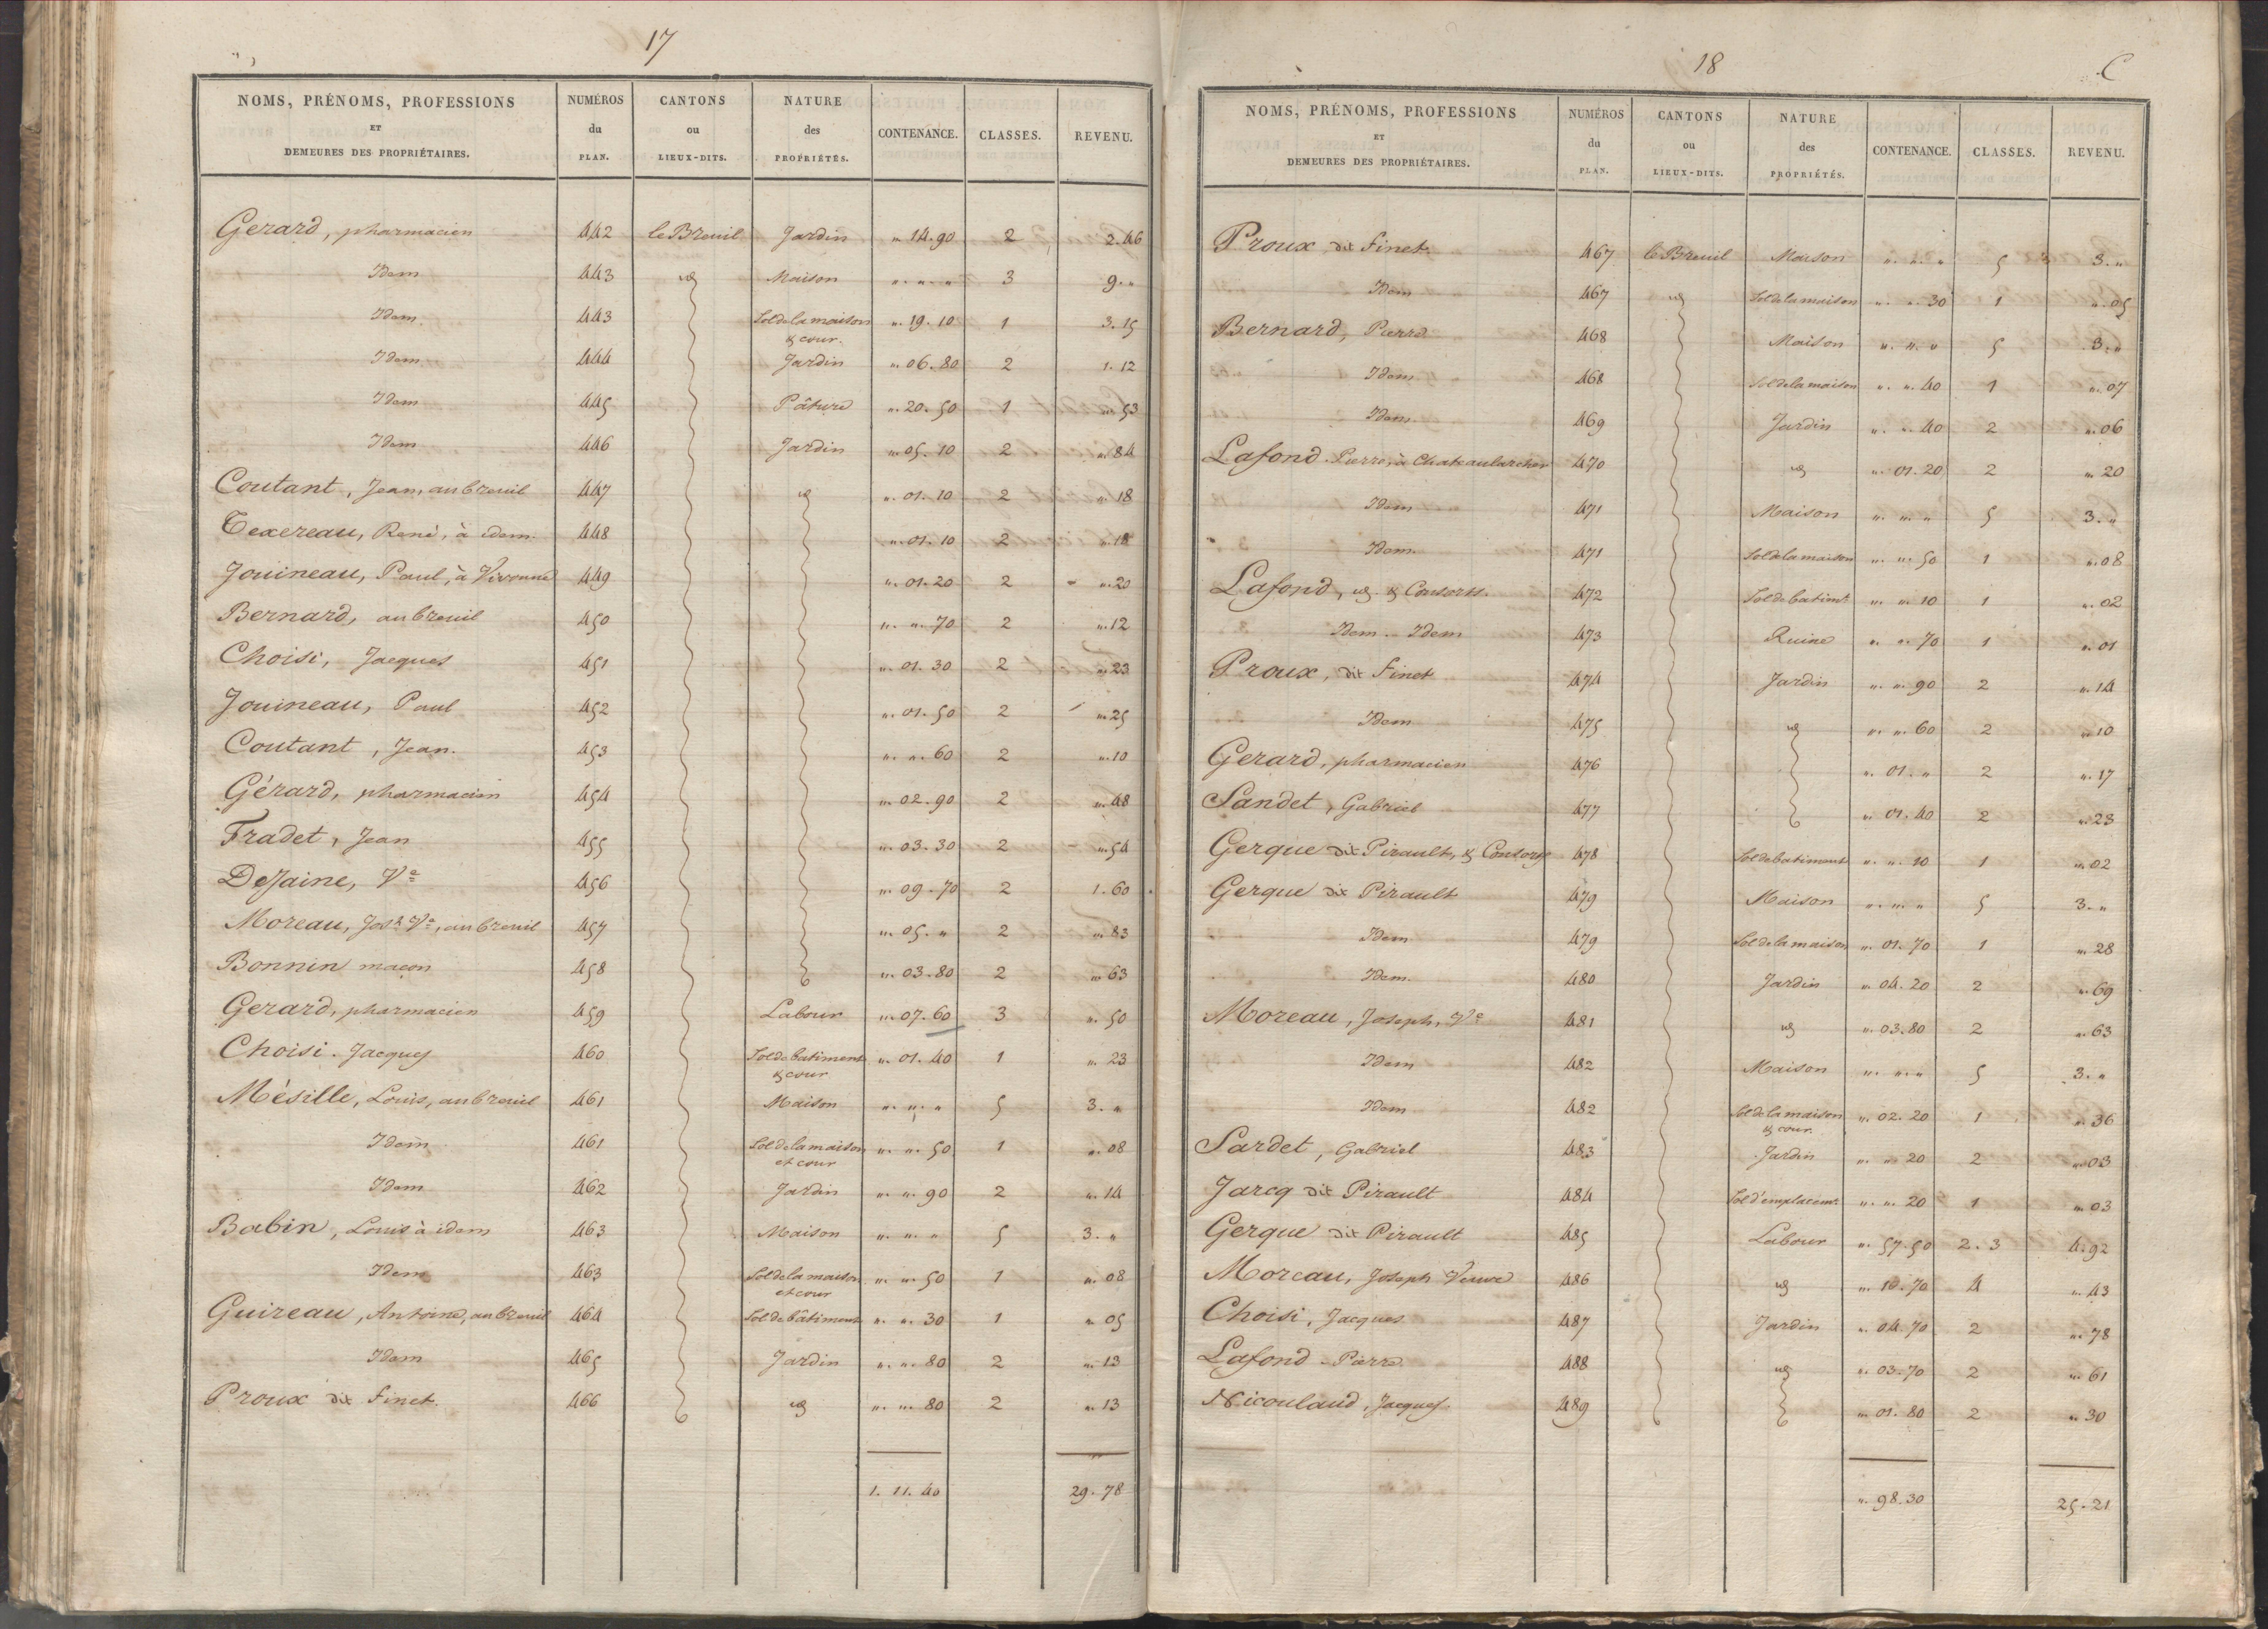 17
NOMS, PRÉNOMS, PROFESSIONS ET DEMEURES DES PROPRIÉTAIRES. NUMÉROS du PLAN. CANTONS ou LIEUX-DITS. NATURE des PROPRIÉTÉS. CONTENANCE. CLASSES. REVENU.
Gerard, pharmacien 442 le Breuil Jardin " 14. 90 2 2. 46
Idem 443 id Maison " " " 3 9. "
Idem 443 Sol de la maison & cour. " 19. 10 1 3. 15
Idem 444 Jardin " 06. 80 2 1. 12
Idem 445 Pâture " 20. 50 1 " 53
Idem 446 Jardin " 05. 10 2 " 84
Coutant, Jean, au breuil 447 id " 01. 10 2 " 18
Texereau, René, à idem. 448 " 01. 10 2 " 18
Jouineau, Paul, à Vivonne 449 " 01. 20 2 " 20
Bernard, au breuil 450 " " 70 2 " 12
Choisi, Jacques 451 " 01. 30 2 " 23
Jouineau, Paul 452 " 01. 50 2 " 25
Coutant, Jean. 453 " " 60 2 " 10
Gérard, pharmacien 454 " 02. 90 2 " 48
Fradet, Jean 455 " 03. 30 2 " 54
Dezaine, Ve 456 " 09. 70 2 1. 60
Moreau, Josh Ve, au breuil 457 " 05. " 2 " 83
Bonnin maçon 458 " 03. 80 2 " 63
Gerard, pharmacien 459 Labour " 07. 60 3 " 50
Choisi. Jacques 460 Sol de batiment & cour " 01. 40 1 " 23
Mésille, Louis, au breuil 461 Maison " " " 5 3. "
Idem 461 Sol de la maison et cour " " 50 1 " 08
Idem 462 Jardin " " 90 2 " 14
Babin, Louis à idem 463 Maison " " " 5 3. "
Idem 463 Sol de la maison et cour " " 50 1 " 08
Guireau, Antoine, au breuil 464 Sol de bâtiment " " 30 1 " 05
Idem 465 Jardin " " 80 2 " 13
Proux dit Finet. 466 id " " 80 2 " 13
1. 11. 40 29. 78
18
C
NOMS, PRÉNOMS, PROFESSIONS ET DEMEURES DES PROPRIÉTAIRES. NUMÉROS du PLAN. CANTONS ou LIEUX-DITS. NATURE des PROPRIÉTÉS. CONTENANCE. CLASSES. REVENU.
Proux dit Finet. 467 le Breuil Maison " " " 5 3. "
Idem 467 id Sol de la maison " " 30 1 " 05
Bernard, Pierre 468 Maison " " " 5 3. "
Idem 468 Sol de la maison " " 40 1 " 07
Idem. 469 Jardin " " 40 2 " 06
Lafond Pierre, à Chateaularcher 470 id " 01. 20 2 " 20
Idem 471 Maison " " " 5 3. "
Idem. 471 Sol de la maison " " 50 1 " 08
Lafond, id. & Consorts. 472 Sol de batimt " " 10 1 " 02
Idem. Idem 473 Ruine " " 70 1 " 01
Proux, dit Finet 474 Jardin " " 90 2 " 14
Idem 475 id " " 60 2 " 10
Gerard, pharmacien 476 " 01. " 2 " 17
Sandet, Gabriel 477 " 01. 40 2 " 23
Gerque dit Pirault, & Consorts 478 Sol de batiment " " 10 1 " 02
Gerque dit Pirault 479 Maison " " " 5 3. "
Idem 479 Sol de la maison " 01. 70 1 " 28
Idem. 480 Jardin " 04. 20 2 " 69
Moreau, Joseph, Ve 481 id " 03. 80 2 " 63
Idem 482 Maison " " " 5 3. "
Idem 482 Sol de la maison & cour. " 02. 20 1 " 36
Sardet, Gabriel 483 Jardin " " 20 2 " 03
Jarcq dit Pirault 484 Sol d'emplacemt " " 20 1 " 03
Gerque dit Pirault 485 Labour " 57. 50 2. 3 4. 92
Moreau, Joseph Veuve 486 id " 10. 70 4 " 43
Choisi, Jacques 487 Jardin " 04. 70 2 " 78
Lafond Pierre 488 id " 03. 70 2 " 61
Nicoulaud, Jacques 489 " 01. 80 2 " 30
" 98. 30 25. 21